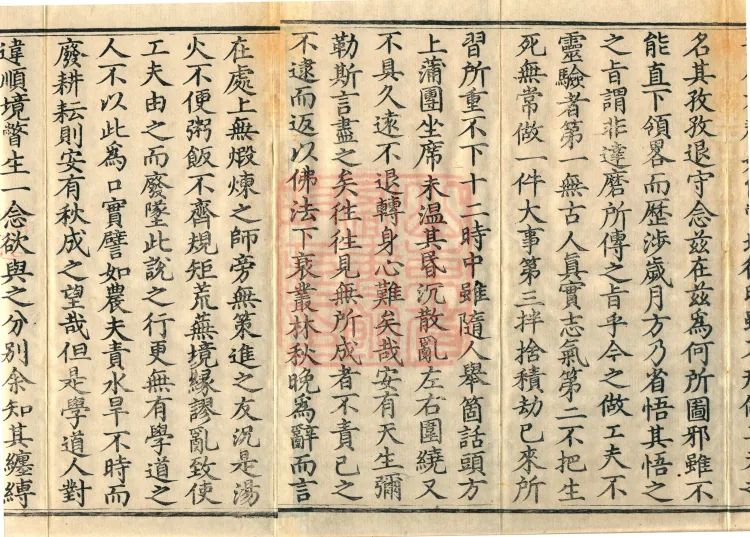 名其孜孜退守念茲在茲為何所圖邪雖不
能直下領畧而歷涉歲月方乃省悟其悟之
之旨謂非達磨所傳之旨乎今之做工夫不
靈驗者第一無古人真實志氣第二不把生
死無常做一件大事第三拌捨積劫已來所
習所重不下十二時中雖隨人舉箇話頭方
上蒲團坐席未温其昏沉散亂左右圍繞又
不具久遠不退轉身心難矣哉安有天生彌
勒斯言盡之矣徃徃見無所成者不責已之
不逮而返以佛法下衰叢林秋晚為辭而言
在處上無煅煉之師旁無策進之友況是湯
火不便粥飯不齊規矩荒蕪境緣謬亂致使
工夫由之而廢墜此說之行更無有學道之
人不以此為口實譬如農夫責水旱不時而
廢耕耘則安有秋成之望哉但是學道人對
違順境瞥生一念欲與之分別余知其纏縛